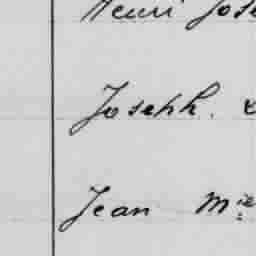 Henri Jose
Joseph.
Jean Mie